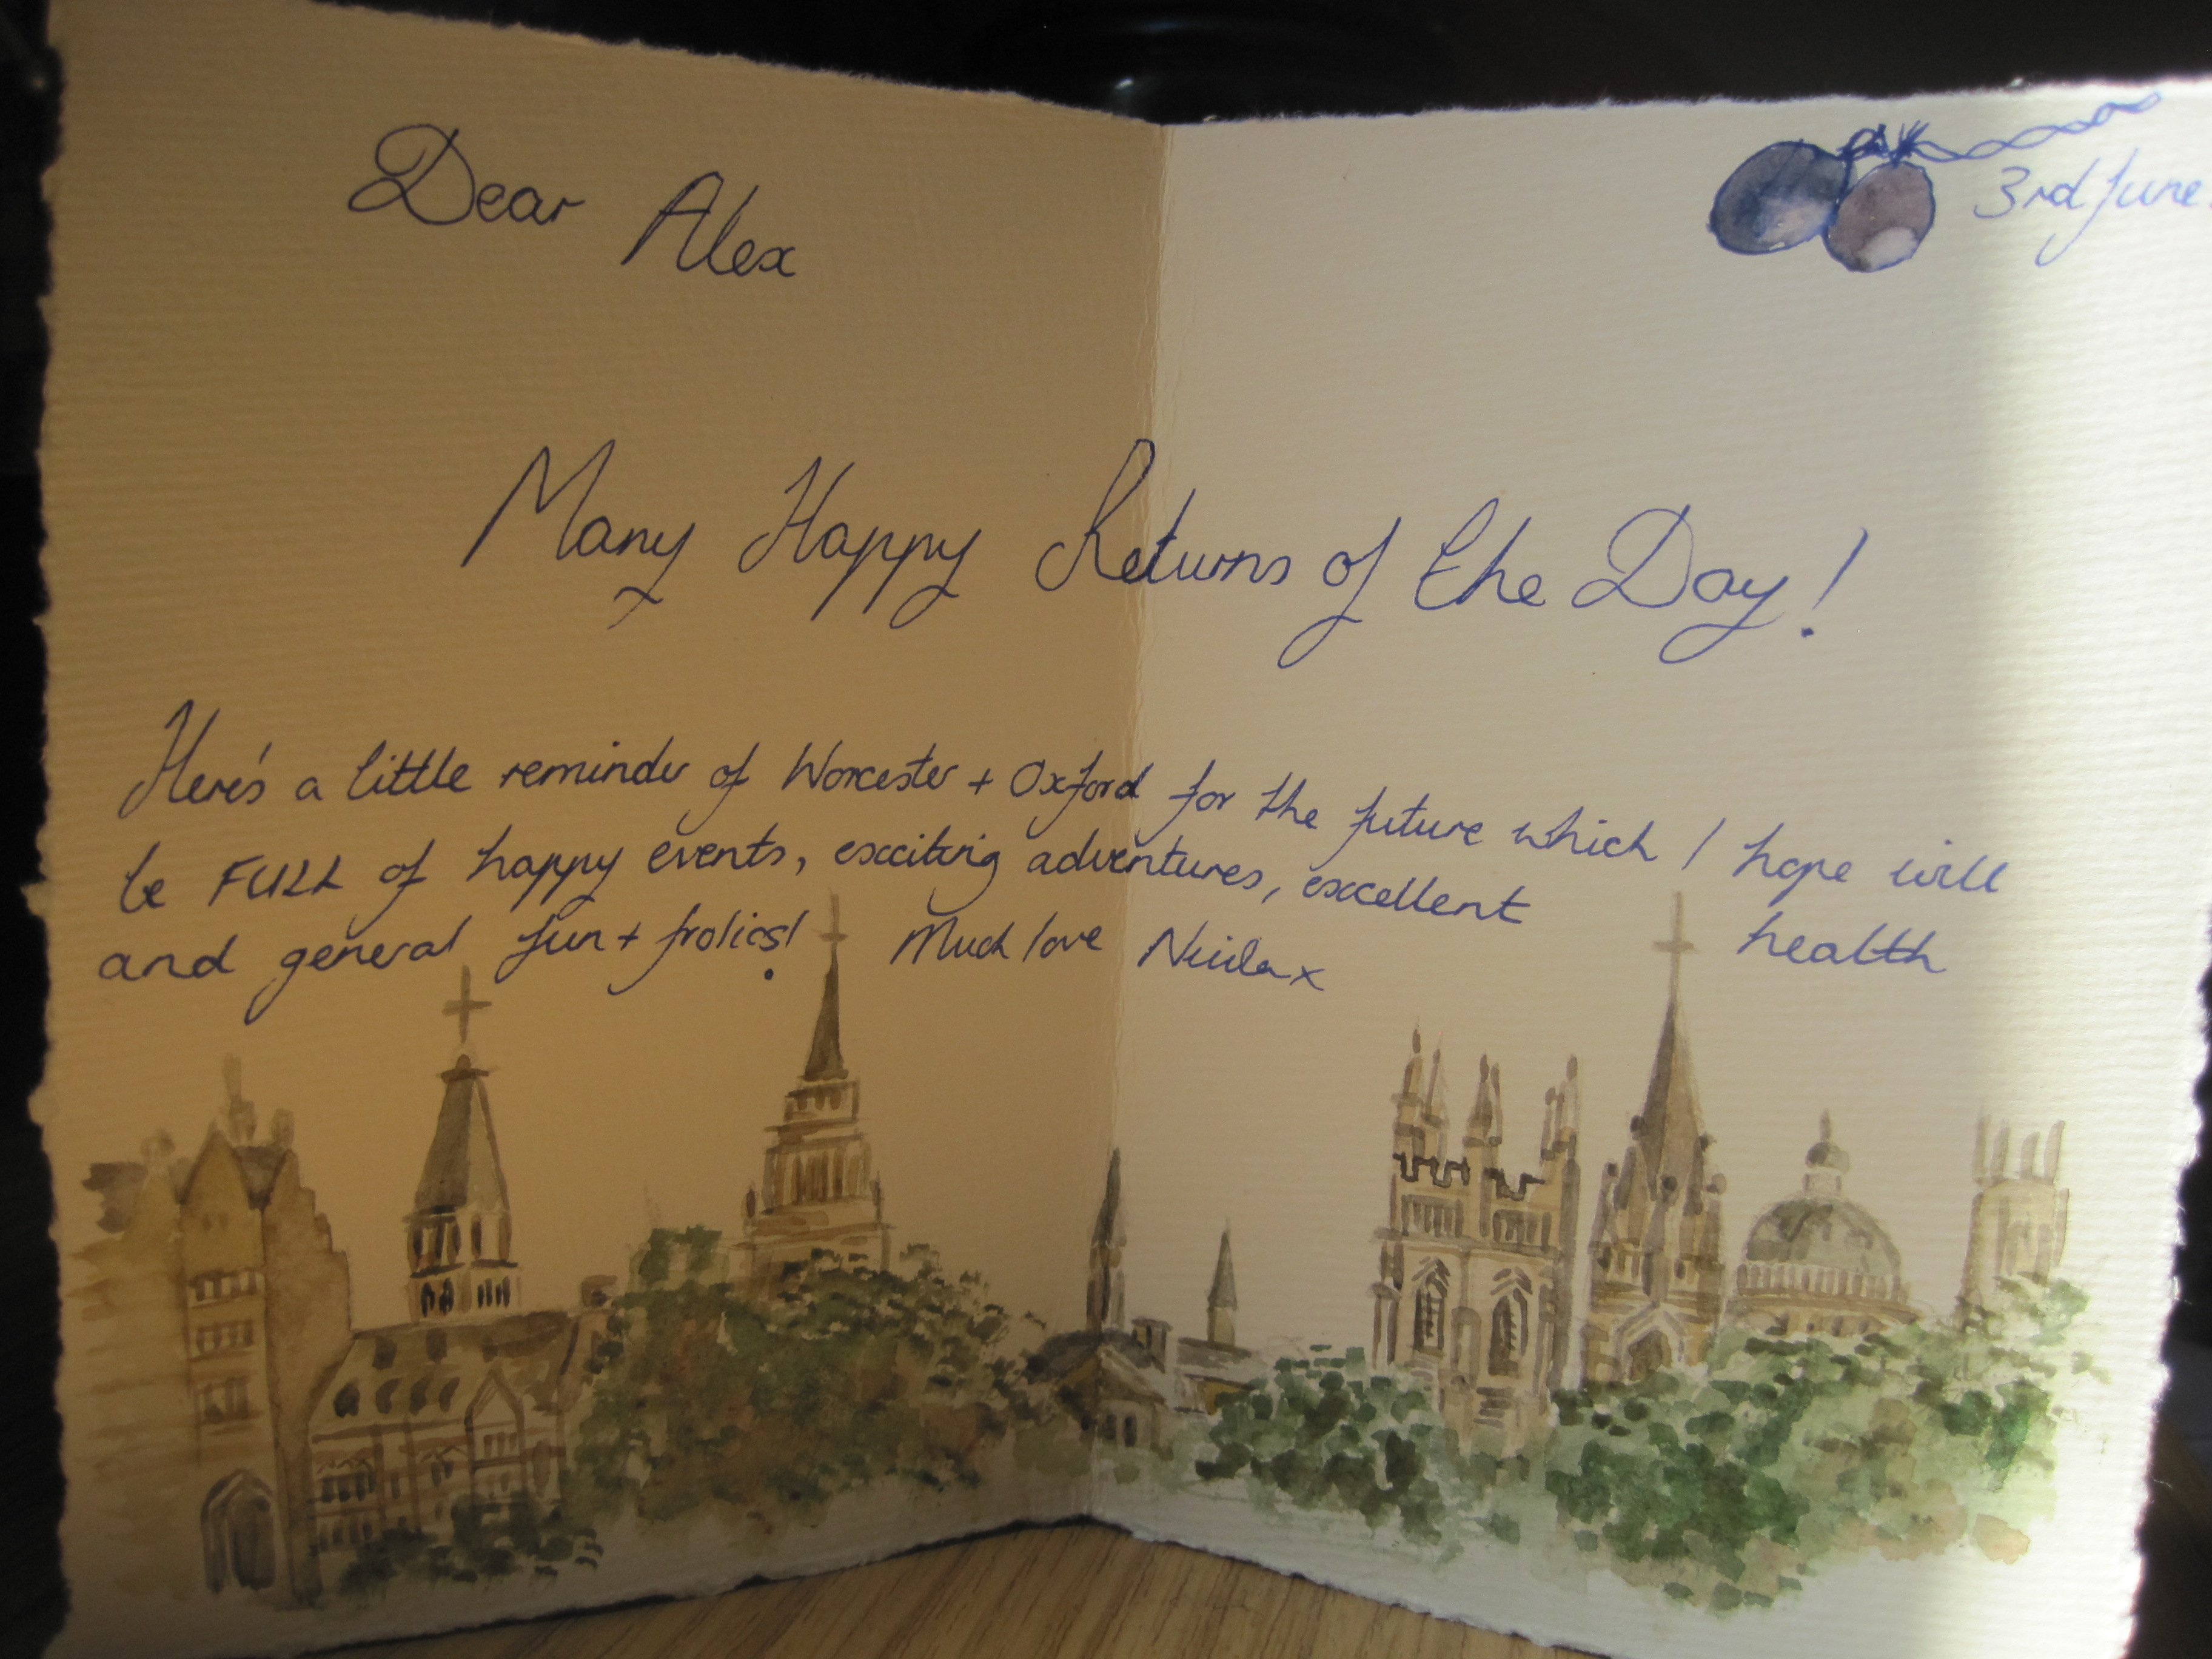 3rd June.
Dear Alex
Many Happy Returns of the Day!
Here's a little reminder of Worcester + Oxford for the future which I hope will
be FULL of happy events, exciting adventures, excellent health
and general fun + frolics! Much love Nicola x